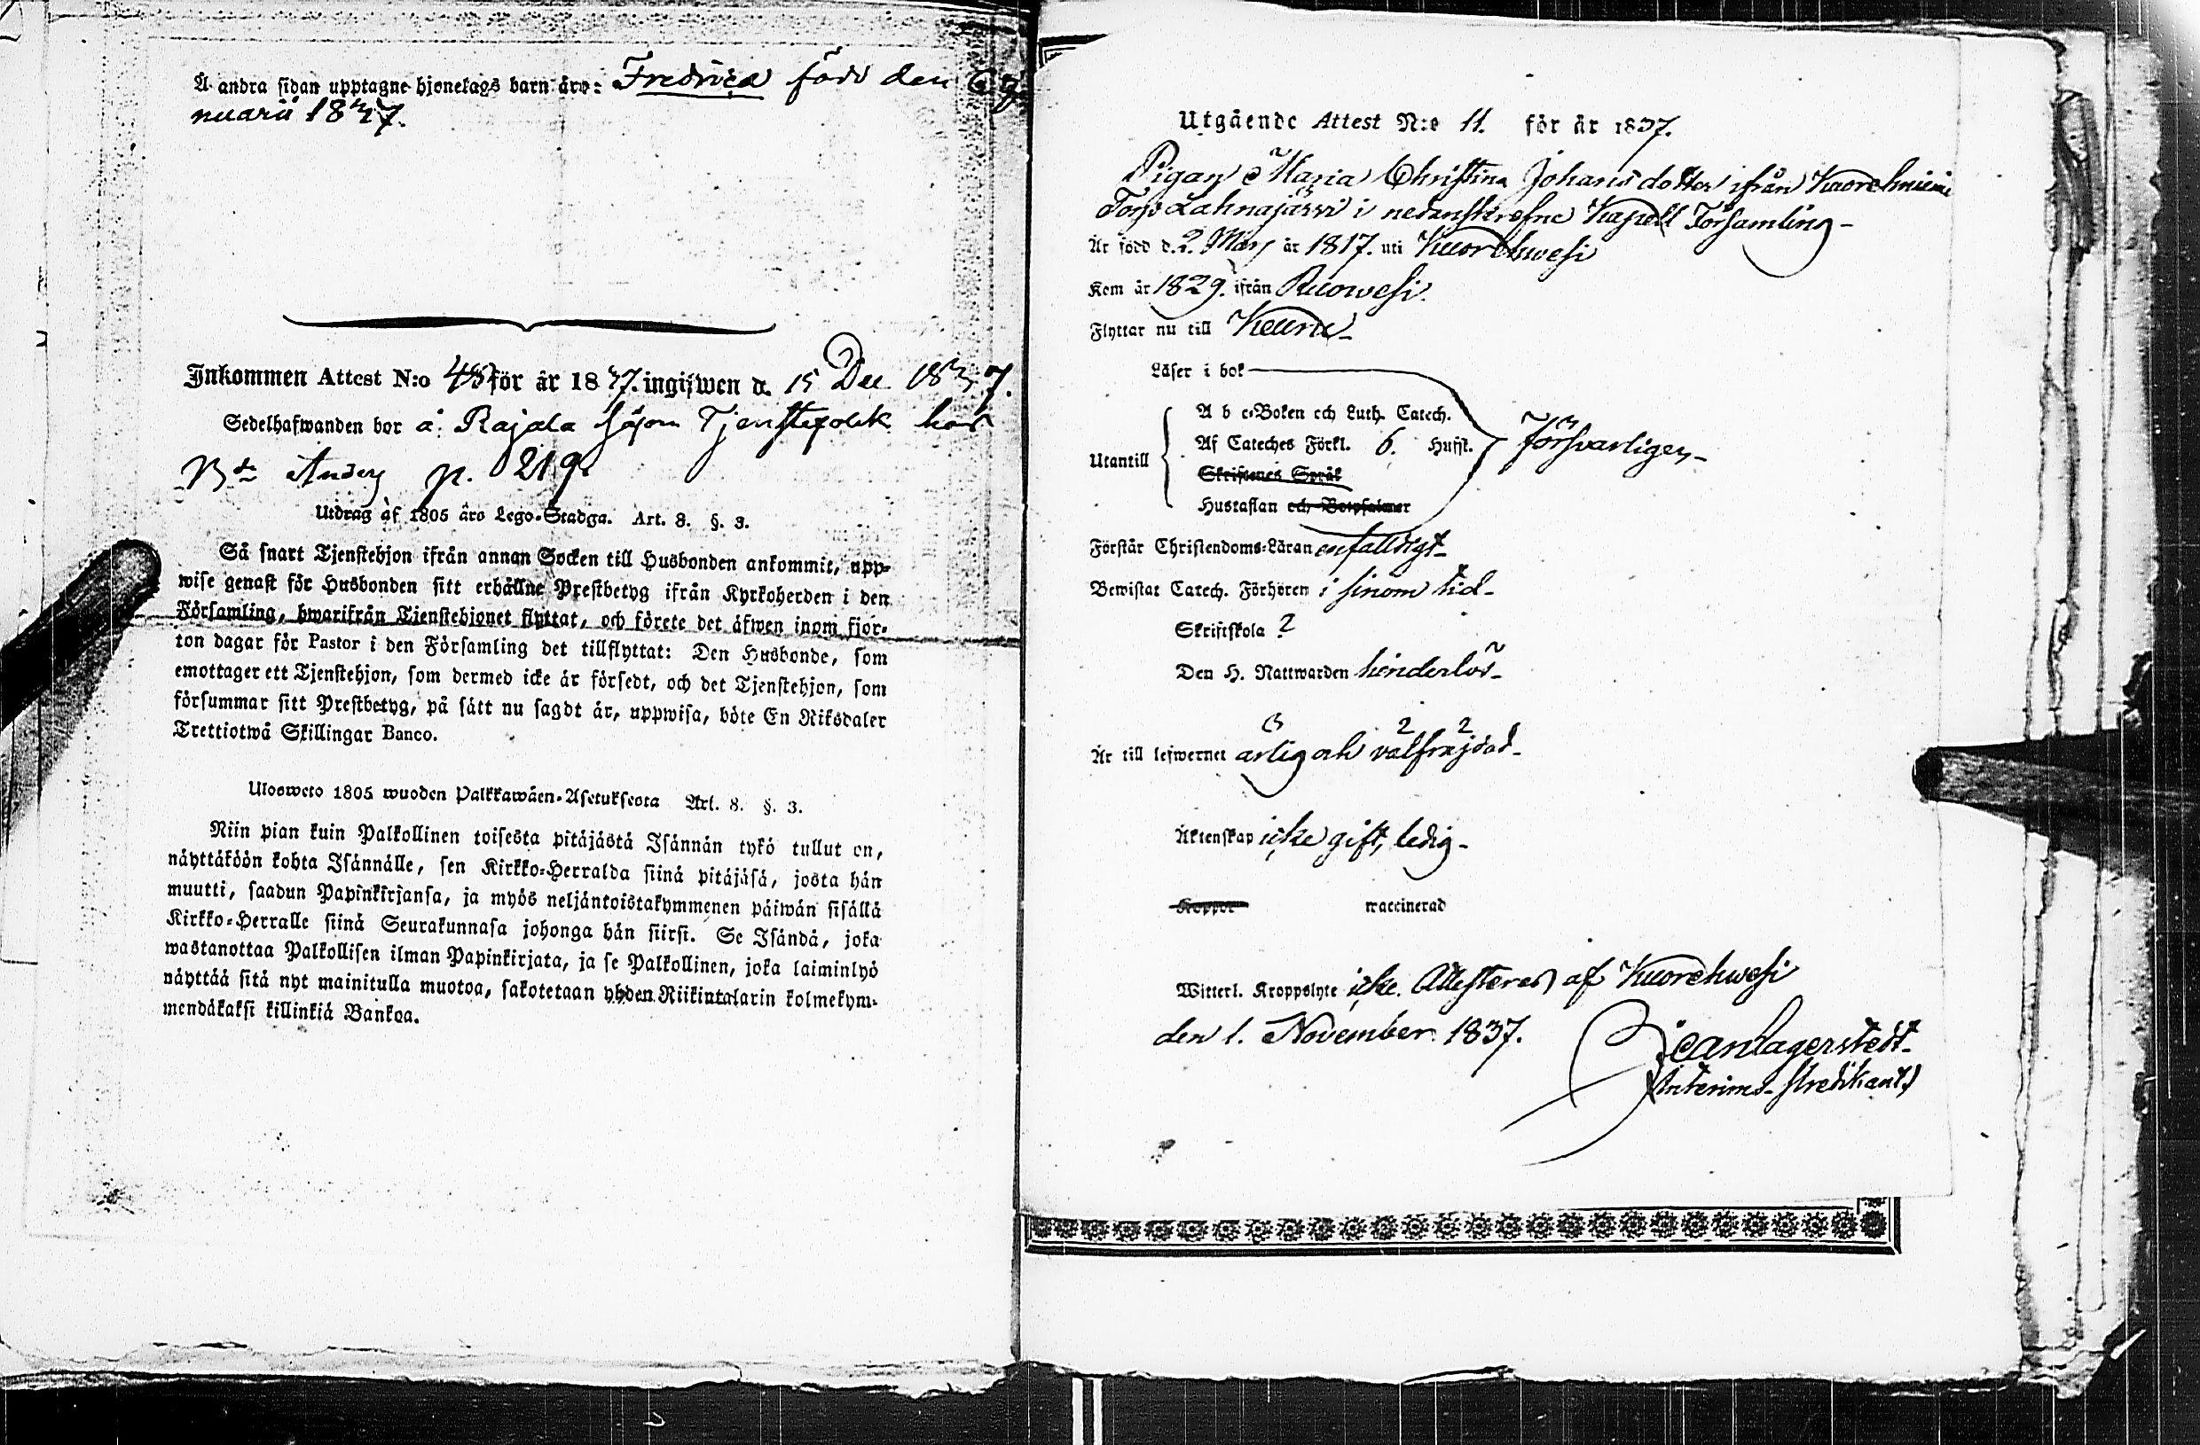 Å andra sidan upptagne hjonelags barn äro: Fredrica född den 6 Ja
nuarii 1837.
Inkommen Attest N:o 45 för år 1837. ingifwen d. 15 Dec. 1837.
Sedelhafwanden bor å Rajala såsom Tjenstefolk hos
Bde p. 219.
Utdrag af 1805 års Lego-Stadga. Art. 8. §. 3.
Så snart Tjenstehjon ifrån annan Socken till Husbonden ankommit, upp-
wise genast för Husbonden sitt erhållne Prestbetyg ifrån Kyrkoherden i den
Församling, hwarifrån Tjenstehjonet flyttat, och förete det äfwen inom fjor-
ton dagar för Pastor i den Församling det tillflyttat: Den Husbonde, som
emottager ett Tjenstehjon, som dermed icke är försedt, och det Tjenstehjon, som
försummar sitt Prestbetyg, på sätt nu sagdt är, uppwisa, böte En Riksdaler
Trettiotwå Skillingar Banco.
Ulosweto 1805 wuoden Palkkawäen-Asetuksesta Art. 8. §. 3.
Niin pian kuin Palkollinen toisesta pitäjästä Isännän tykö tullut on,
näyttäköön kohta Isännälle, sen Kirkko-Herralda siinä pitäjäsä, josta hän
muutti, saadun Papinkirjansa, ja myös neljäntoistakymmenen päiwän sisällä
Kirkko-Herralle siinä Seurakunnasa johonga hän siirsi. Se Isändä, joka
wastanottaa Palkollisen ilman Papinkirjata, ja se Palkollinen, joka laiminlyö
näyttää sitä nyt mainitulla muotoa, sakotetaan yhden Riikintalarin kolmekym-
mendäkaksi killinkiä Bankoa.
Utgående Attest N:o 11. för år 1837.
Pigan Maria Christina Johansdotter ifrån Kuorehniemi
Torp Lahnajärvi i nedanskrefne Kapell Församling-
Är född d. 2. Mars år 1817. uti Kuorehwesi
Kom år 1829. ifrån Ruowesi.
Flyttar nu till Keuru-
Läser i bok
A b c-Boken och Luth. Catech.
Utantill Af Cateches Förkl. 6. Hufst. Försvarligen-
Skriftenes Språk
Hustaflan och Botpsalmer
Förstår Christendoms-Läran enfalldigt-
Bewistat Catech. Förhören i sinom tid-
Skriftskola
Den H. Nattwarden hinderlös-
Är till lefwernet ärlig och välfräjdad-
Äktenskap icke gift, ledig-
Koppor waccinerad
Witterl. Kroppslyte icke. Attesteras af Kuorehwesi
den 1. November 1837.
Jean Lagerstedt-
Interims-Predikant